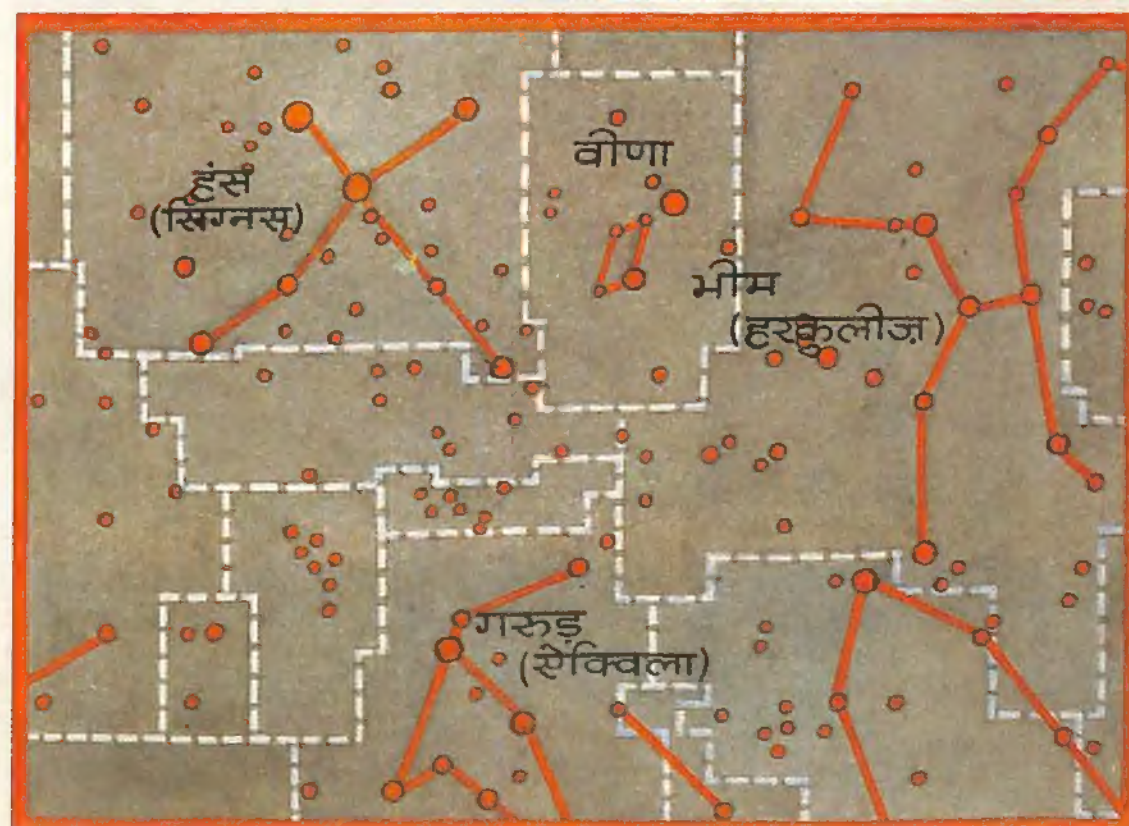 वीणा
हंस
(सिग्नस)
भीम
(हरकुलीज़)
गरुड़
(ऐक्विला)